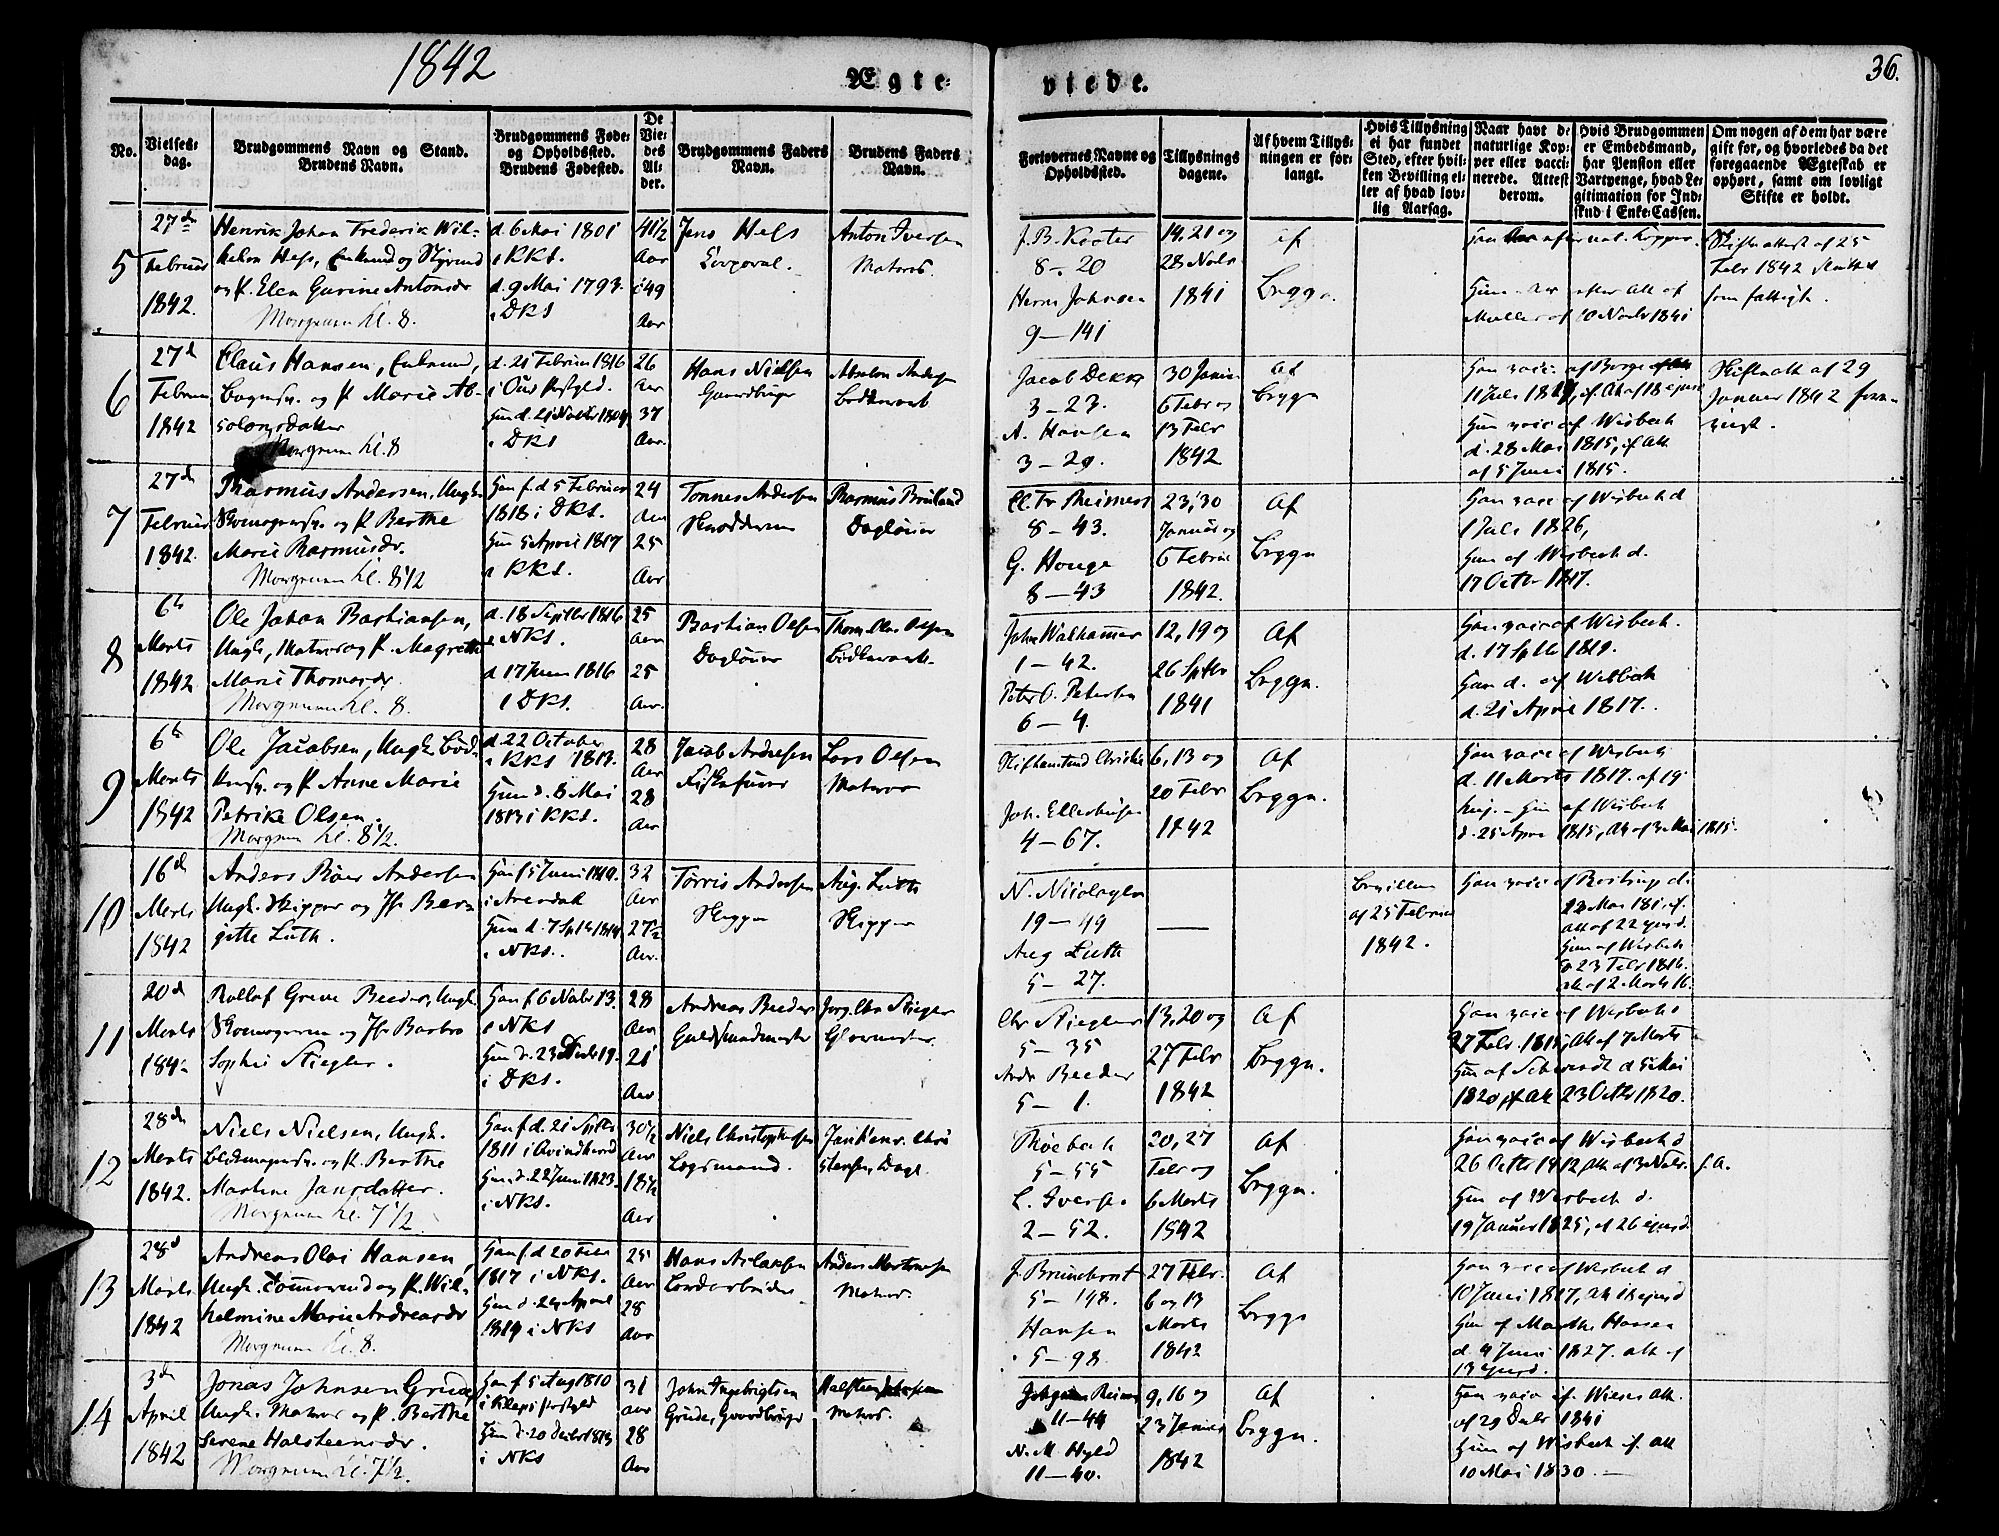 1842
Ægte=
viede.
36.
No.
Vielses=
dag.
Brudgommens Navn og Stand.
Brudens Navn.
Brudgommens Føde=
og Opholdssted.
Brudens Fødested.
De
Vie=
des
Al=
der.
Brudgommens Faders
Navn.
Brudens Faders
Navn.
Forlovernes Navne og
Opholdssted.
Tillysnings
dagene.
Af hvem Tillys=
ningen er for=
langt.
Hvis Tillysning
ei har fundet
Sted, efter hvil=
ken Bevilling el=
ler af hvad lov=
lig Aarsag.
Naar havt de
naturlige Kop=
per eller vacci=
nerede. Attest
derom.
Hvis Brudgommen
er Embedsmand,
har Pension eller
Vartpenge, hvad Le=
gitimation for Ind=
skud i Enke=Cassen.
Om nogen af dem har være
gift før, og hvorledes da det
foregaaende Ægteskab er
ophørt, samt om lovligt
Skifte er holdt.
5
27de
Februar
1842.
Henrik Johan Frederik Wil=
helm Hess, Enkemd og
og P. Elen Gurine Antonsdr
Morgnum kl. 8.
d. 6 Mai 1801
i KKS.
d. 9 Mai 1793.
i DKS
41 1/2
Aar
49
Aar
Jens Hess
Anton Iversen
Matros.
8 - 20
Herm Johnsen
9 - 141
14, 21 og
28 Novbr
1841
af
Brggn.
10 Novbr 1841
Skifteattest af 25
Febr 1842
6
27d
Februar
1842
Claus Hansen, Enkemd,
og P. Marie Ab=
solonsdatter
Morgnum kl. 8
d. 21 Februar 1816
i DKS
26
Aar
37
Aar.
Hans Nielsen
Gaardbruger
Absolon Anders
Jacob Dekke
3 - 23.
A. Hansen
3 - 29.
30 Januar
6 Febr og
13 Febr
1842
Af
Brggn
Hun vacc af Wisbech
d. 28 Mai 1815, if. Att
af 5 Juni 1815.
Skifteatt af 29
Januar 1842
7
27de
Februar
1842.
Rasmus Andersen, Ungk.
Skomagersv. og P. Berthe
Marie Rasmusdr.
Morgnum kl. 8 1/2
Han f. d 5 Februar
1818 i DKS.
Hun 5 April 1817
i KKS.
24
Aar
25
Aar
Tonnes Andersen
Rasmus Bruland
Dagløner
Cl. Fr Reimers
8 - 43.
G. Houge
8 - 43
23, 30
Januar og
6 Februar
1842.
Af
Brggn
Han vacc af Wisbech d
1 Juli 1826,
Hun af Wisbech d.
17 Octbr 1817.
8
6te
Marts
1842
Ole Johan Bastiansen,
Ungk, Matros og P. Magrethe
Marie Thomasdr.
Morgnum kl. 8.
d. 18 Septbr 1816
i NKS.
d 17 Juni 1816
i DKS.
25
Aar
25
Aar.
Bastian Olsen
Dagløner
John Walhammer
1 - 42.
Peter O. Petersen
6 - 4.
12, 19 og
26 Sptbr
1841
Af
Brggn.
Han vacc af Wisbech.
d. 17 Sptb 1819.
Hun d. af Wisbech
d. 21 April 1817.
9
6te
Marts
1842
Ole Jacobsen, Ungk. Bød=
kersv. og P. Anne Marie
Petrike Olsen.
Morgnum kl. 8 1/2.
d. 22 October
i KKS 1813.
Hun d. 8 Mai
1813 i KKS.
28
Aar
28
Aar
Jacob Andresen
Lars Olsen
Matros
4 - 67.
6, 13 og
20 Febr
1842
Af
Brggn.
Han vacc af Wisbech
d. 11 Marts 1817. af 19
Hun af Wisbech
d. 25 April 1815, Att af 3 Mai 1815.
10
16de
Marts
1842
Anders Röer Andersen
Ungk. Skipper og Jfr Ber=
gitte Luth.
Han f 5 Juni 1810.
i Arendal
i NKS.
32
Aar
27 1/2
Aar.
Törris Andersen
Skipper
Aug. Luth
Skipper
N. Nicolaysen
19 - 49
Aug Luth
5 - 27.
Bevilling
af 25 Februar
1842.
Hun af Wisbech
d 23 Febr 1816.
att af 2 Marts 16.
11
20de
Marts
1842
Rollof Greve Beeder, Ungk.
og Jfr Barbro
Sophie Stiegler.
Han f 6 Novbr 13.
i NKS
i DKS.
28
Aar
21
Aar
Andreas Beeder
Guldsmedmester
Chr Stiegler
5 - 35
Andr Beeder
5 - 1.
13, 20 og
27 Febr
1842
Af
Brggn.
Han vacc af Wisbech
27 Febr. 1815, Att af 7 Marts
Hun af Schwindt d 5 Mai
1820 if att 23 Octbr 1820.
12
28de
Marts
1842.
Niels Nielsen, Ungk.
og P. Berthe
Martine Jansdatter.
Morgnum kl. 7 1/2
Han f. d. 21 Sptbr
1811 i Qvindherred
Hun d. 22 Juni 1823.
i NKS.
30 1/2
Aar
18 1/2
Aar
Niels Christophersen
5 - 55
L. Iversen
2 - 52.
20, 27
Febr og
6 Marts
1842
Af
Brggn.
Han vacc af Wisbech d
26 Octbr 1812, Att af 3 Novbr. s. A.
Hun af Wisbech d.
19 Januar 1825, af 26 ejusd.
13
28d
Marts
1842
Andreas Olai Hansen,
Ungk. Tømmermd og P. Wil=
helmine Marie Andreasdr
Morgnum kl. 8.
Han f d 20 Febr
1817 i NKS.
Hun d. 24 April
1814 i NKS
25
Aar
28
Aar
Hans Aslaksen
Anders Mortensen
Matros.
J. Brunchorst
5 - 148.
Hansen
5 - 98.
27 Febr.
6 og 13
Marts
1842
Af
Brggn
Han vacc af Wisbech d
10 Juni 1817,
Hun af Marthe Hansen
d. 4 Juni 1827. att af
13 ejusd.
14
3de
April
1842
Jonas Johnsen Grude,
Ungk. Matros og P. Berthe
Serene Halsteensdr.
Morgnum kl. 7 1/2.
Han f 5 Aug 1810
i Kleps Prstgld
Hun d. 20 Decbr 1813
i NKS
31
Aar
28
Aar
John Ingebrigtsen
Grude, Gaardbruger
Matros.
11 - 44
N. M. Hyld
11 - 40.
9, 16 og
23 Januar
1842
Af
Brggn.
af 29 Decbr 1841
Hun af Wisbech if. att
10 Mai 1830.